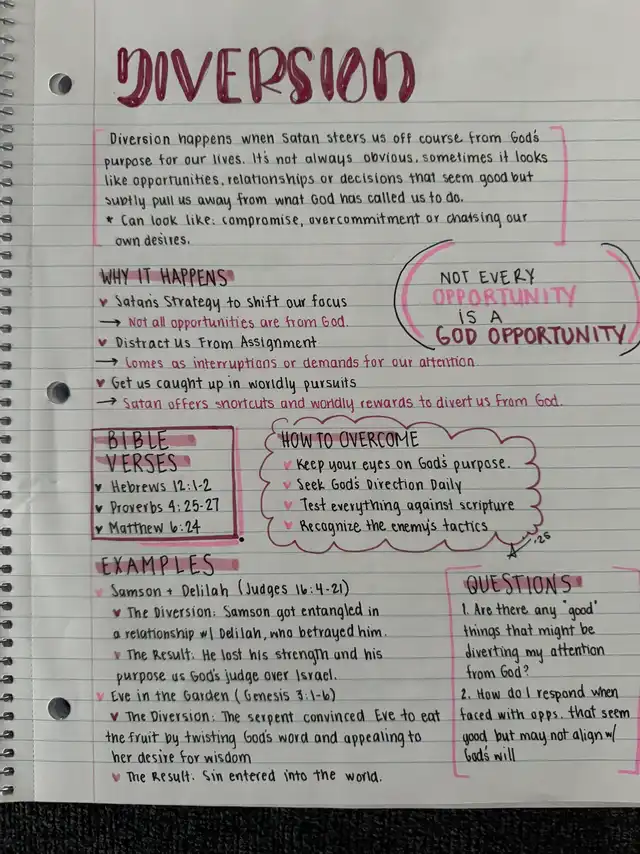 DIVERSION
Diversion happens when Satan steers us off course from God's
purpose for our lives. It's not always obvious, sometimes it looks
like opportunities, relationships or decisions that seem good but
subtly pull us away from what God has called us to do.
* Can look like: compromise, overcommitment or chasing our
own desires.
WHY IT HAPPENS
♥ Satan's Strategy to shift our focus
→ Not all opportunities are from God.
♥ Distract Us From Assignment
→ Comes as interruptions or demands for our attention
♥ Get us caught up in worldly pursuits
→ Satan offers shortcuts and worldly rewards to divert us from God.
NOT EVERY
OPPORTUNITY
IS A
GOD OPPORTUNITY
BIBLE
VERSES
♥ Hebrews 12:1-2
♥ Proverbs 4:25-27
♥ Matthew 6:24
HOW TO OVERCOME
♥ Keep your eyes on God's purpose.
♥ Seek God's Direction Daily
♥ Test everything against scripture
♥ Recognize the enemy's tactics
.25
EXAMPLES
♥ Samson + Delilah (Judges 16:4-21)
♥ The Diversion: Samson got entangled in
a relationship w/ Delilah, who betrayed him.
♥ The Result: He lost his strength and his
purpose as God's judge over Israel.
♥ Eve in the Garden (Genesis 3:1-6)
♥ The Diversion: The serpent convinced Eve to eat
the fruit by twisting God's word and appealing to
her desire for wisdom
♥ The Result: Sin entered into the world.
QUESTIONS
1. Are there any "good"
things that might be
diverting my attention
from God?
2. How do I respond when
faced with opps. that seem
good but may not align w/
God's will